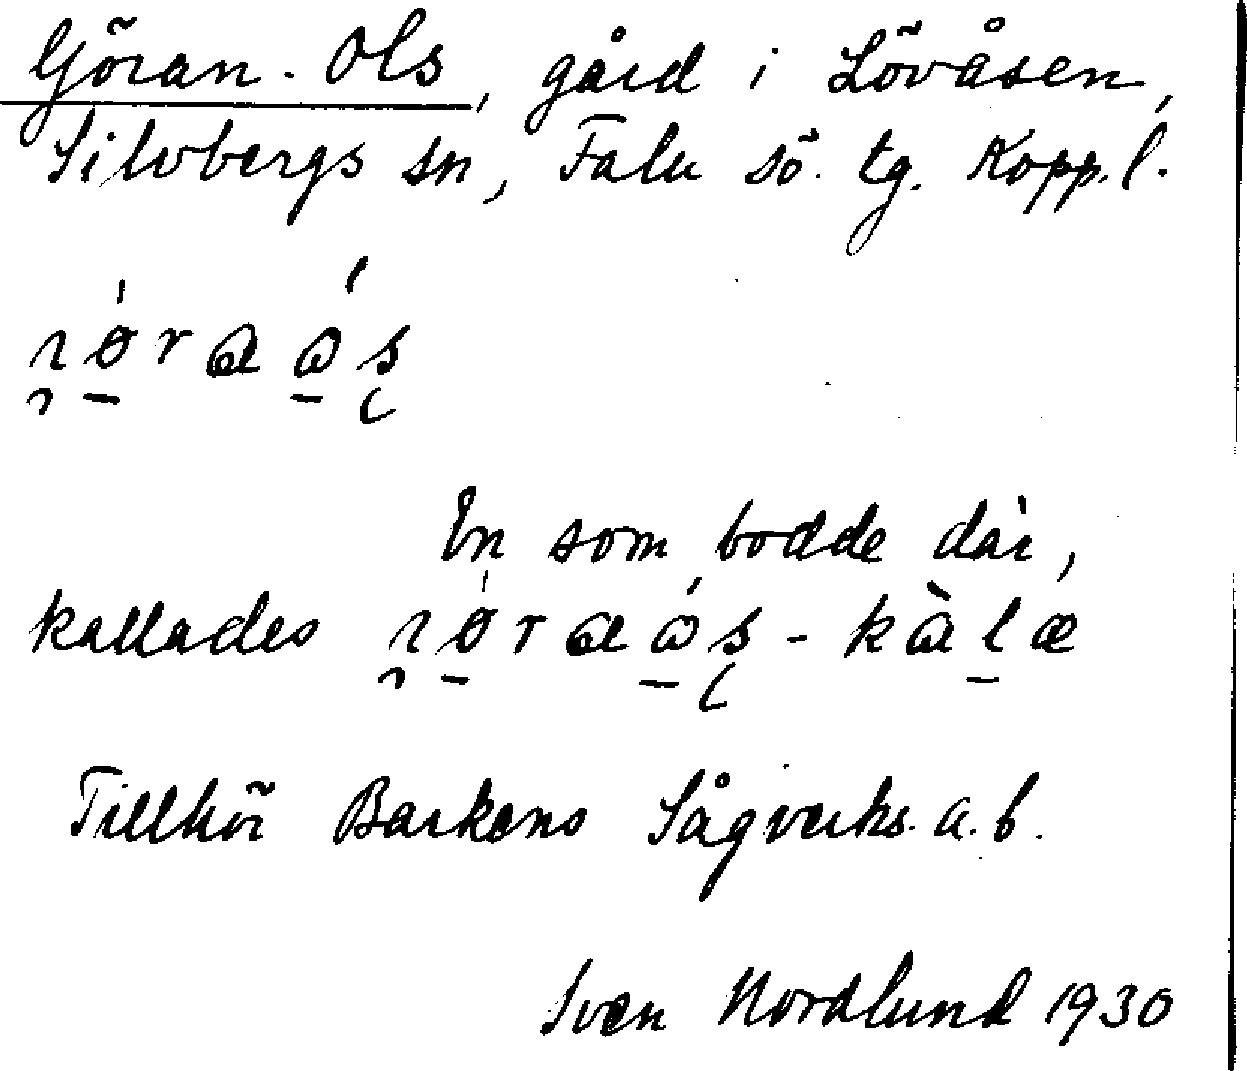 Göran-Ols, gård i Lövåsen,
Silvbergs sn, Falu sö. tg. Kopp. l.
En som bodde där,
kallades
Tillhör Barkens Sågverks a.b.
Sven Nordlund 1930